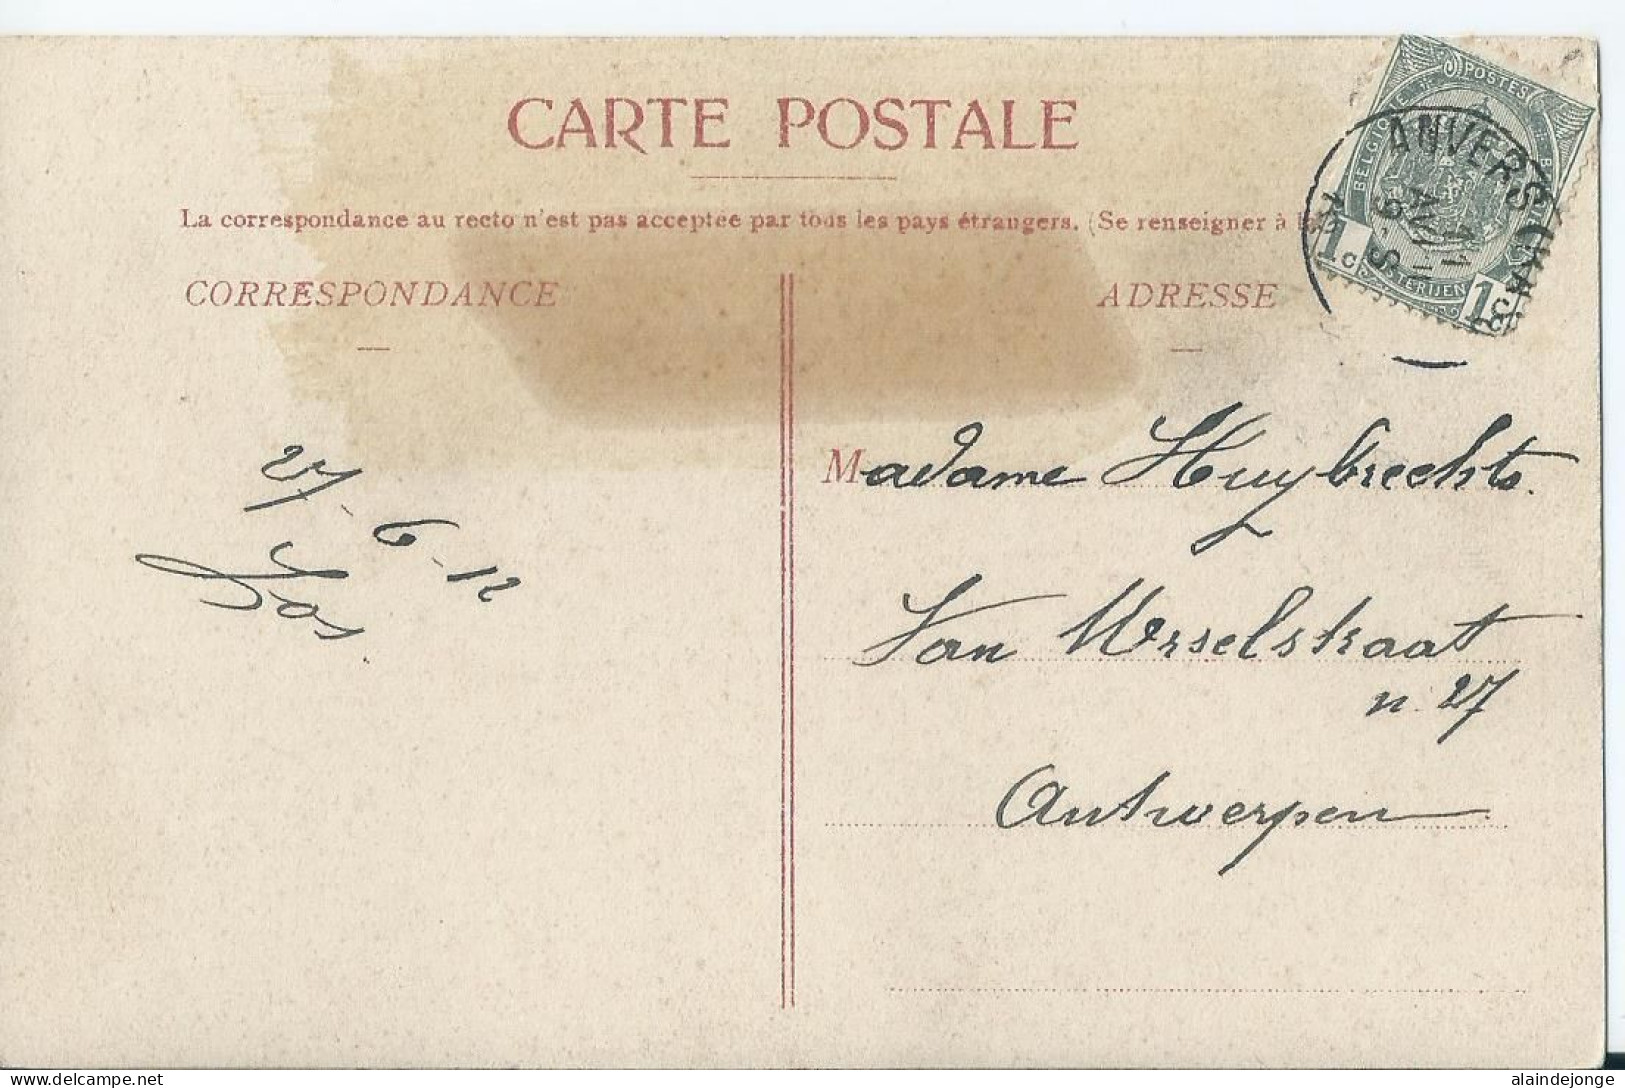 CARTE POSTALE
La correspondance au recto n'est pas acceptée par tous les pays étrangers. (Se renseigner à la
CORRESPONDANCE
ADRESSE
POSTES
BELGIQUE
ANVERS
1c
1c
27-6-12
Jos
Madame Huybrechts.
Van Urselstraat
n. 27
Antwerpen
delcampe.net
alaindejonge